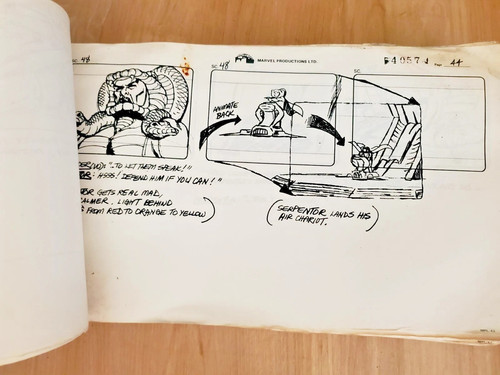 SC. 48
SC. 48
MARVEL PRODUCTIONS LTD.
SC.
44
ANIMATE
BACK
"...TO LET THEM SPEAK!"
: HSSS! DEFEND HIM IF YOU CAN!"
GETS REAL MAD,
CALMER. LIGHT BEHIND
FROM RED TO ORANGE TO YELLOW)
(SERPENTOR LANDS HIS
AIR CHARIOT.)